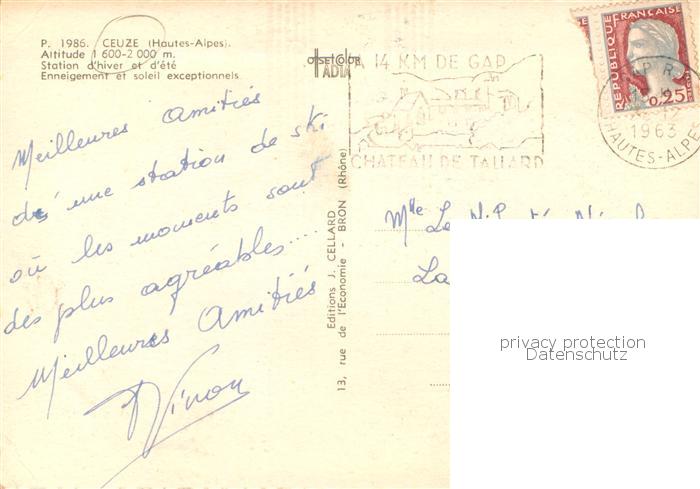 P. 1986. CEUZE (Hautes-Alpes).
Altitude 1 600-2 000 m.
Station d'hiver et d'été
Enneigement et soleil exceptionnels
OFFSETCOLOR
IADIA
A 14 KM DE GAP
CHATEAU DE TALLARD
REPUBLIQUE FRANÇAISE
0,25
GAP R.P.
1963
HAUTES-ALPES
Meilleures amitiés
d'une station de ski
où les moments sont
des plus agréables....
Meilleures Amitiés
Editions J. CELLARD
13, rue de l'Economie - BRON (Rhône)
Mlle
La
privacy protection
Datenschutz